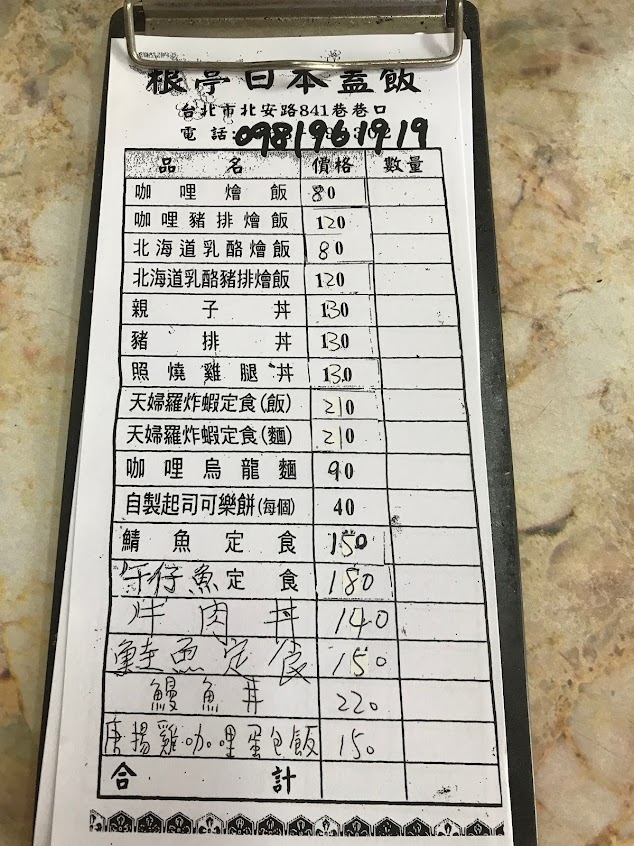 根亭日本蓋飯
台北市北安路841巷巷口
電話: 0981961919
品名 價格 數量
咖哩燴飯 80
咖哩豬排燴飯 120
北海道乳酪燴飯 80
北海道乳酪豬排燴飯 120
親子丼 130
豬排丼 130
照燒雞腿丼 130
天婦羅炸蝦定食(飯) 210
天婦羅炸蝦定食(麵) 210
咖哩烏龍麵 90
自製起司可樂餅(每個) 40
鯖魚定食 150
午仔魚定食 180
牛肉丼 140
鮭魚定食 150
鰻魚丼 220
唐揚雞咖哩蛋包飯 150
合計